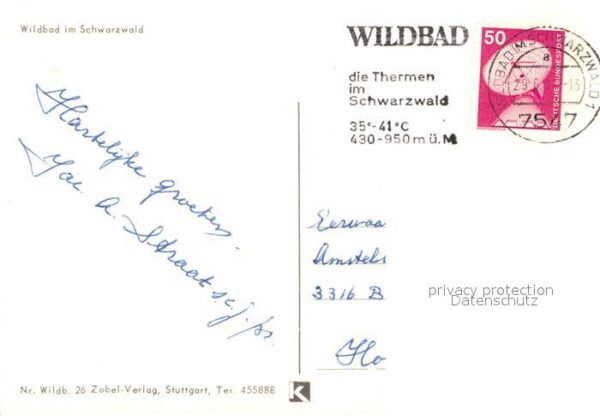 Wildbad im Schwarzwald
WILDBAD
die Thermen
im
Schwarzwald
35°-41°C
430-950 m ü. M
50
DEUTSCHE BUNDESPOST
WILDBAD IM SCHWARZWALD 1
a
-13
7547
Hartelijke groeten.
Jac. A. Straat s.c.j. pr.
Eerwaa
Amstels
3316 B
Ho
privacy protection
Datenschutz
Nr. Wildb. 26 Zobel-Verlag, Stuttgart, Tel. 455888
K